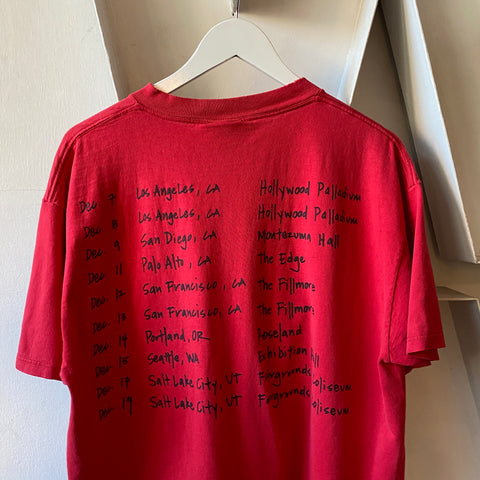 Dec 7 Los Angeles, CA Hollywood Palladium
Dec 8 Los Angeles, CA Hollywood Palladium
Dec 9 San Diego, CA Montezuma Hall
Dec 11 Palo Alto, CA The Edge
Dec 12 San Francisco, CA The Fillmore
Dec 13 San Francisco, CA The Fillmore
Dec 14 Portland, OR Roseland
Dec 15 Seattle, WA Exhibition
Dec 17 Salt Lake City, UT
Dec 19 Salt Lake City, UT